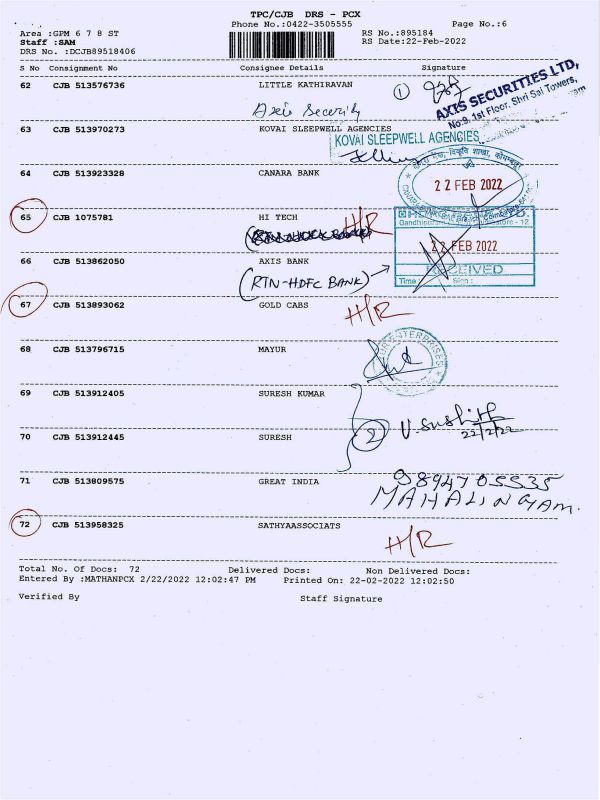 TPC/CJB DRS - PCX
Phone No.:0422-3505555
Page No.:6
Area :GPM 6 7 8 ST
RS No.:895184
Staff :SAM
RS Date:22-Feb-2022
DRS No. :DCJB89518406
S No Consignment No Consignee Details Signature
62 CJB 513576736 LITTLE KATHIRAVAN
1
Axis Security
AXIS SECURITIES LTD,
No.9, 1st Floor, Shri Sai Towers,
63 CJB 513970273 KOVAI SLEEPWELL AGENCIES
KOVAI SLEEPWELL AGENCIES
64 CJB 513923328 CANARA BANK
22 FEB 2022
65 CJB 1075781 HI TECH
H/R
22 FEB 2022
66 CJB 513862050 AXIS BANK
(RTN-HDFC BANK)
RECEIVED
Time Sign :
67 CJB 513893062 GOLD CABS
H/R
68 CJB 513796715 MAYUR
ENTERPRISES
69 CJB 513912405 SURESH KUMAR
2
V. Sushith
22/2/22
70 CJB 513912445 SURESH
71 CJB 513809575 GREAT INDIA
9894705535
MAHALINGAM.
72 CJB 513958325 SATHYAASSOCIATS
H/R
Total No. Of Docs: 72 Delivered Docs: Non Delivered Docs:
Entered By :MATHANPCX 2/22/2022 12:02:47 PM Printed On: 22-02-2022 12:02:50
Verified By Staff Signature